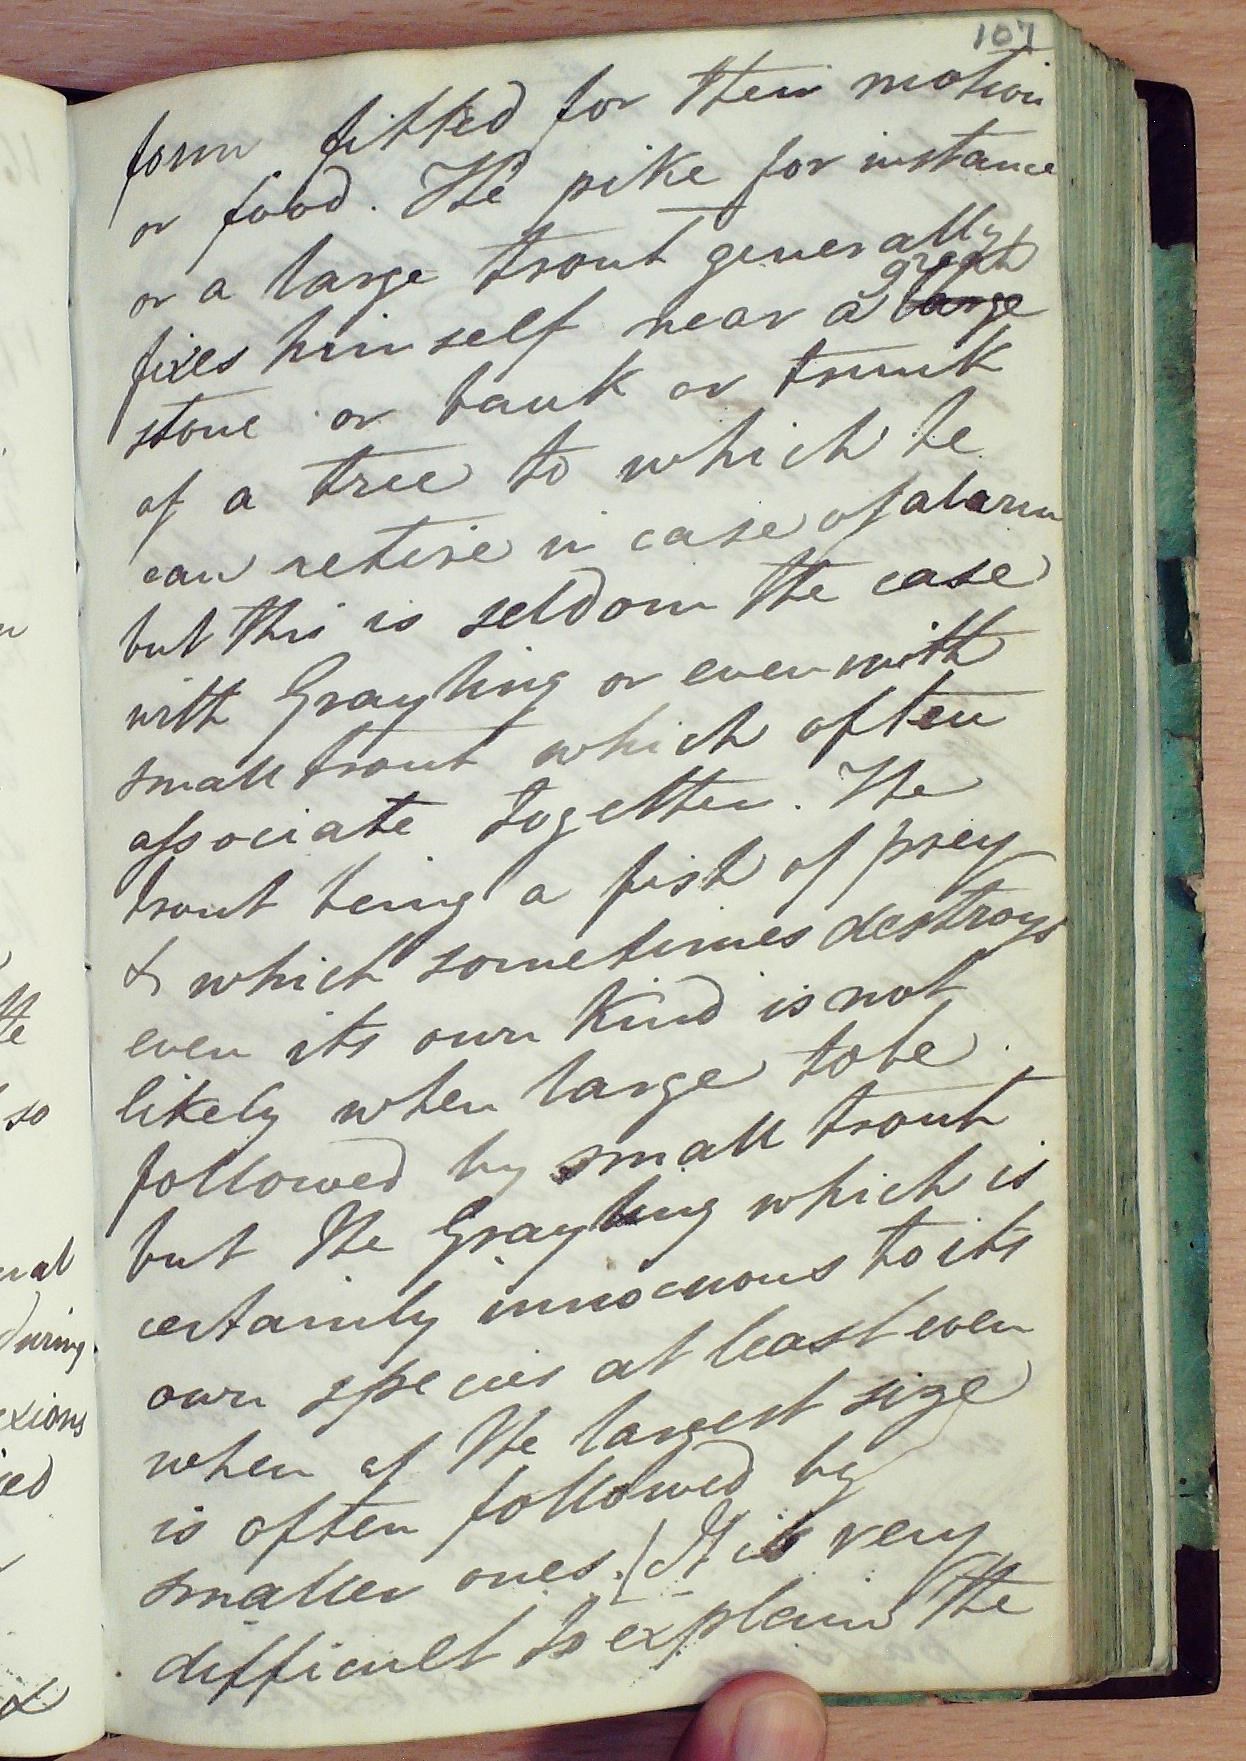 107
form fitted for their motion
or food. The pike for instance
or a large trout generally
fixes himself near a great large
stone or bank or trunk
of a tree to which he
can retire in case of alarm
but this is seldom the case
with Grayling or even with
small trout which often
associate together. The
trout being a fish of prey
& which sometimes destroys
even its own kind is not
likely when large to be
followed by small trout
but the Grayling which is
certainly innocuous to its
own species at least even
when of the largest size
is often followed by
smaller ones. It is very
difficult to explain the
n
tte
so
al
during
exions
ed